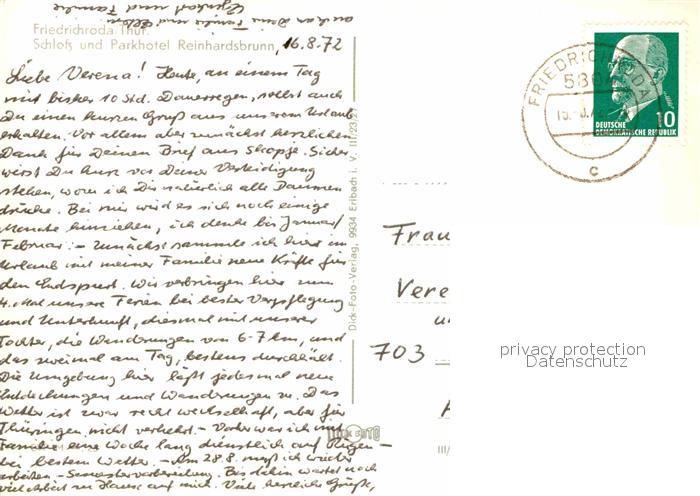 auch an Deine Familie und Eltern
Gerhard und Familie
Friedrichroda/Thür.
Schloß und Parkhotel Reinhardsbrunn, 16.8.72
Liebe Verena! Heute, an einem Tag
mit bisher 10 Std. Dauerregen, sollst auch
Du einen kurzen Gruß aus unserem Urlaub
erhalten. Vor allem aber zunächst herzlichen
Dank für Deinen Brief aus Skopje. Sicher
wirst Du kurz vor Deiner Verteidigung
stehen, wozu ich Dir natürlich alle Daumen
drücke. Bei mir wird es sich noch einige
Monate hinziehen, ich denke bis Januar/
Februar. – Zunächst sammle ich hier im
Urlaub mit meiner Familie neue Kräfte für
den Endspurt. Wir verbringen hier zum
4. Mal unsere Ferien bei bester Verpflegung
und Unterkunft, diesmal mit unserer
Tochter, die Wanderungen von 6-7 km, und
das zweimal am Tag, bestens durchhält.
Die Umgebung hier läßt jedesmal neue
Entdeckungen und Wanderungen zu. Das
Wetter ist zwar recht wechselhaft, aber für
Thüringen nicht verkehrt. – Vorher war ich mit
Familie eine Woche lang dienstlich auf Rügen –
bei bestem Wetter. – Am 28.8. muß ich wieder
arbeiten – Semestervorbereitung. Bis dahin wartet noch
viel Arbeit zu Hause auf mich. Viele herzliche Grüße,
Dick-Foto-Verlag, 9934 Erlbach i. V. III/23/27
DICK FOTO
III/
FRIEDRICHRODA
580
c
DEUTSCHE
DEMOKRATISCHE REPUBLIK
10
Frau
Vere
u
703
privacy protection
Datenschutz